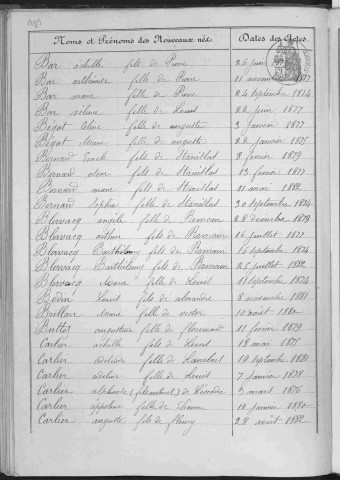 Noms et Prénoms des Nouveaux nés. Dates des Actes.
Bar achille fils de Pierre 26 juin
Bar arthémise fille de Pierre 11 novembre 1877
Bar marie fille de Pierre 24 septembre 1874
Bar fille de Louis 22 juin 1877
Bégot Céline fille de auguste 3 janvier 1877
Bégot Marie fille de auguste 22 janvier 1875
Bernard Emile fils de Stanislas 8 février 1879
Bernard fils de Stanislas 13 février 1877
Bernard marie fille de Stanislas 11 mai 1882
Bernard Sophie fille de Stanislas 30 septembre 1874
Blervacq angèle fille de Romain 28 décembre 1879
Blervacq arthur fils de Romain 16 juillet 1877
Blervacq Barthélemy fils de Romain 16 septembre 1874
Blervacq Barthélemy fils de Romain 25 juillet 1882
Blervacq fille de Louis 11 septembre 1874
Bodin Louis fils de alexandre 8 novembre 1881
fille de victor 10 août 1880
augustine fille de 11 février 1879
Carlier achille fils de Louis 18 mai 1875
Carlier fils de Lambert 19 septembre 1881
Carlier adeline fille de Louis 7 janvier 1878
Carlier alphonse (fils naturel) de 3 mars 1876
Carlier appoline fille de Etienne 12 janvier 1880
Carlier auguste fils de fleury 28 août 1882